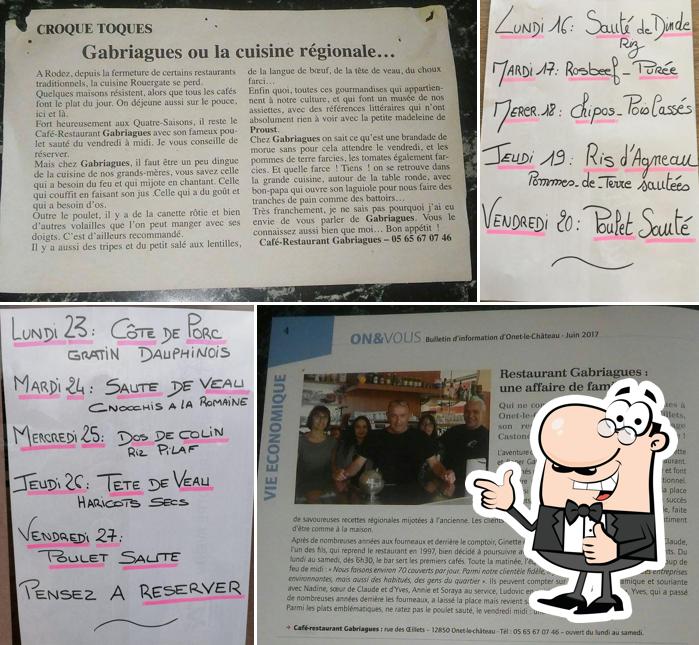 CROQUE TOQUES
Gabriagues ou la cuisine régionale…
A Rodez, depuis la fermeture de certains restaurants
traditionnels, la cuisine Rouergate se perd.
Quelques maisons résistent, alors que tous les cafés
font le plat du jour. On déjeune aussi sur le pouce,
ici et là.
Fort heureusement aux Quatre-Saisons, il reste le
Café-Restaurant Gabriagues avec son fameux pou-
let sauté du vendredi à midi. Je vous conseille de
réserver.
Mais chez Gabriagues, il faut être un peu dingue
de la cuisine de nos grands-mères, vous savez celle
qui a besoin du feu et qui mijote en chantant. Celle
qui confit en faisant son jus .Celle qui a du goût et
qui a besoin d'os.
Outre le poulet, il y a de la canette rôtie et bien
d'autres volailles que l'on peut manger avec ses
doigts. C'est d'ailleurs recommandé.
Il y a aussi des tripes et du petit salé aux lentilles,
de la langue de bœuf, de la tête de veau, du choux
farci…
Enfin quoi, toutes ces gourmandises qui appartien-
nent à notre culture, et qui font un musée de nos
assiettes, avec des références littéraires qui n'ont
absolument rien à voir avec la petite madeleine de
Proust.
Chez Gabriagues on sait ce qu'est une brandade de
morue sans pour cela attendre le vendredi, et les
pommes de terre farcies, les tomates également far-
cies. Et quelle farce ! Tiens ! on se retrouve dans
la grande cuisine, autour de la table ronde, avec
bon-papa qui ouvre son laguiole pour nous faire des
tranches de pain comme des battoirs…
Très franchement, je ne sais pas pourquoi j'ai eu
envie de vous parler de Gabriagues. Vous le
connaissez aussi bien que moi… Bon appétit !
Café-Restaurant Gabriagues – 05 65 67 07 46
LUNDI 16: Sauté de Dinde
Riz
MARDI 17: Rosbeef - Purée
MERCR. 18: Chipos - Pois Cassés
JEUDI 19: Ris d'Agneau
Pommes-de-Terre sautées
VENDREDI 20: Poulet Sauté
LUNDI 23: CÔTE DE PORC
GRATIN DAUPHINOIS
MARDI 24: SAUTE DE VEAU
GNOCCHIS A LA ROMAINE
MERCREDI 25: DOS DE COLIN
RIZ PILAF
JEUDI 26: TETE DE VEAU
HARICOTS SECS
VENDREDI 27:
POULET SAUTE
PENSEZ A RESERVER
4
ON&VOUS Bulletin d'information d'Onet-le-Château - Juin 2017
VIE ÉCONOMIQUE
Restaurant Gabriagues :
une affaire de fami
Qui ne co
Onet-le-
son re
Caston
L'aventure
de savoureuses recettes régionales mijotées à l'ancienne. Les clients
d'être comme à la maison.
Après de nombreuses années aux fourneaux et derrière le comptoir, Ginette Claude,
l'un des fils, qui reprend le restaurant en 1997, bien décidé à poursuivre
lundi au samedi, dès 6h30, le bar sert les premiers cafés. Toute la matinée, l'
feu de midi : « Nous faisons environ 70 couverts par jour. Parmi notre clientèle fidèle, entreprises
environnantes, mais aussi des habitués, des gens du quartier ». Ils peuvent compter sur amique et souriante
avec Nadine, sœur de Claude et d'Yves, Annie et Soraya au service, Ludovic en Yves, qui a passé
de nombreuses années derrière les fourneaux, a laissé la place mais revient s
Parmi les plats emblématiques, ne ratez pas le poulet sauté, le vendredi midi :
Café-restaurant Gabriagues : rue des Œillets – 12850 Onet-le-Château - Tél : 05 65 67 07 46 – ouvert du lundi au samedi.